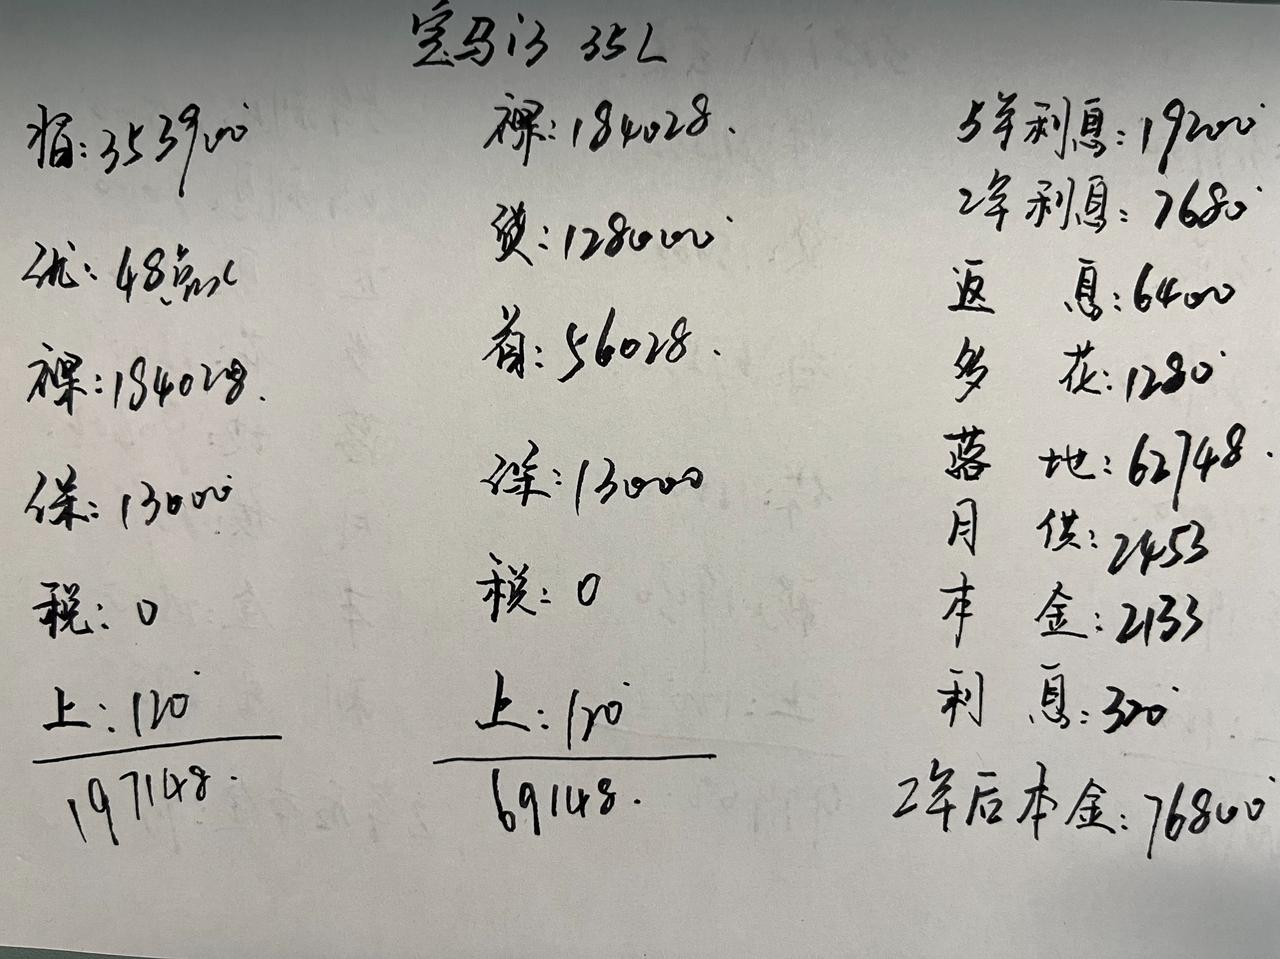 宝马i3 35L
指:353900
优:48点
裸:184028.
保:13000
税:0
上:120
197148.
裸:184028.
贷:128000
首:56028.
保:13000
税:0
上:120
69148.
5年利息:19200
2年利息:7680
返息:6400
多花:1280
落地:62748.
月供:2453
本金:2133
利息:320
2年后本金:76800